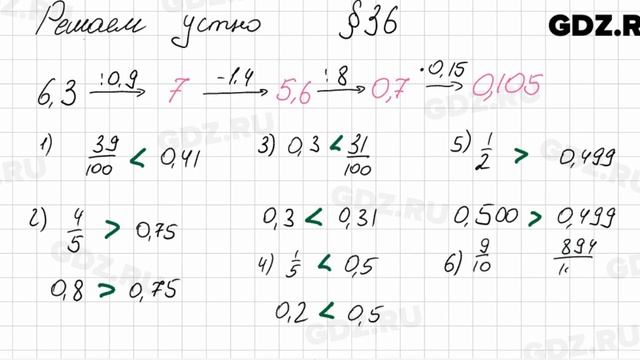 Решаем устно §36
GDZ.R
6,3 :0,9 7 -1,4 5,6 :8 0,7 ·0,15 0,105
1) 39/100 < 0,41
2) 4/5 > 0,75
0,8 > 0,75
3) 0,3 < 31/100
0,3 < 0,31
4) 1/5 < 0,5
0,2 < 0,5
5) 1/2 > 0,499
0,500 > 0,499
6) 9/10 894/
GDZ.RU